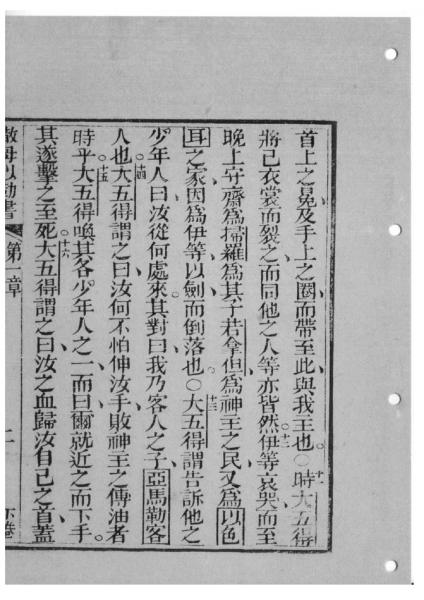 首上之冕及手上之圈而帶至此與我主也。○十一時大五得
將己衣裳而裂之、而同他之人等亦皆然。十二伊等哀哭而至
晚上守齋、爲掃羅爲其子若拿但、爲神主之民、又爲以色
耳之家、因爲伊等以劍而倒落也。○十三大五得謂告訴他之
少年人曰、汝從何處來。其對曰、我乃客人之子、亞馬勒客
人也。十四大五得謂之曰、汝何不怕伸汝手、敗神主之傳油者
時乎。十五大五得喚其各少年人之一、而曰、爾就近之而下手。
其遂擊之至死。十六大五得謂之曰、汝之血歸汝自己之首、蓋
書 第一章 二 下卷